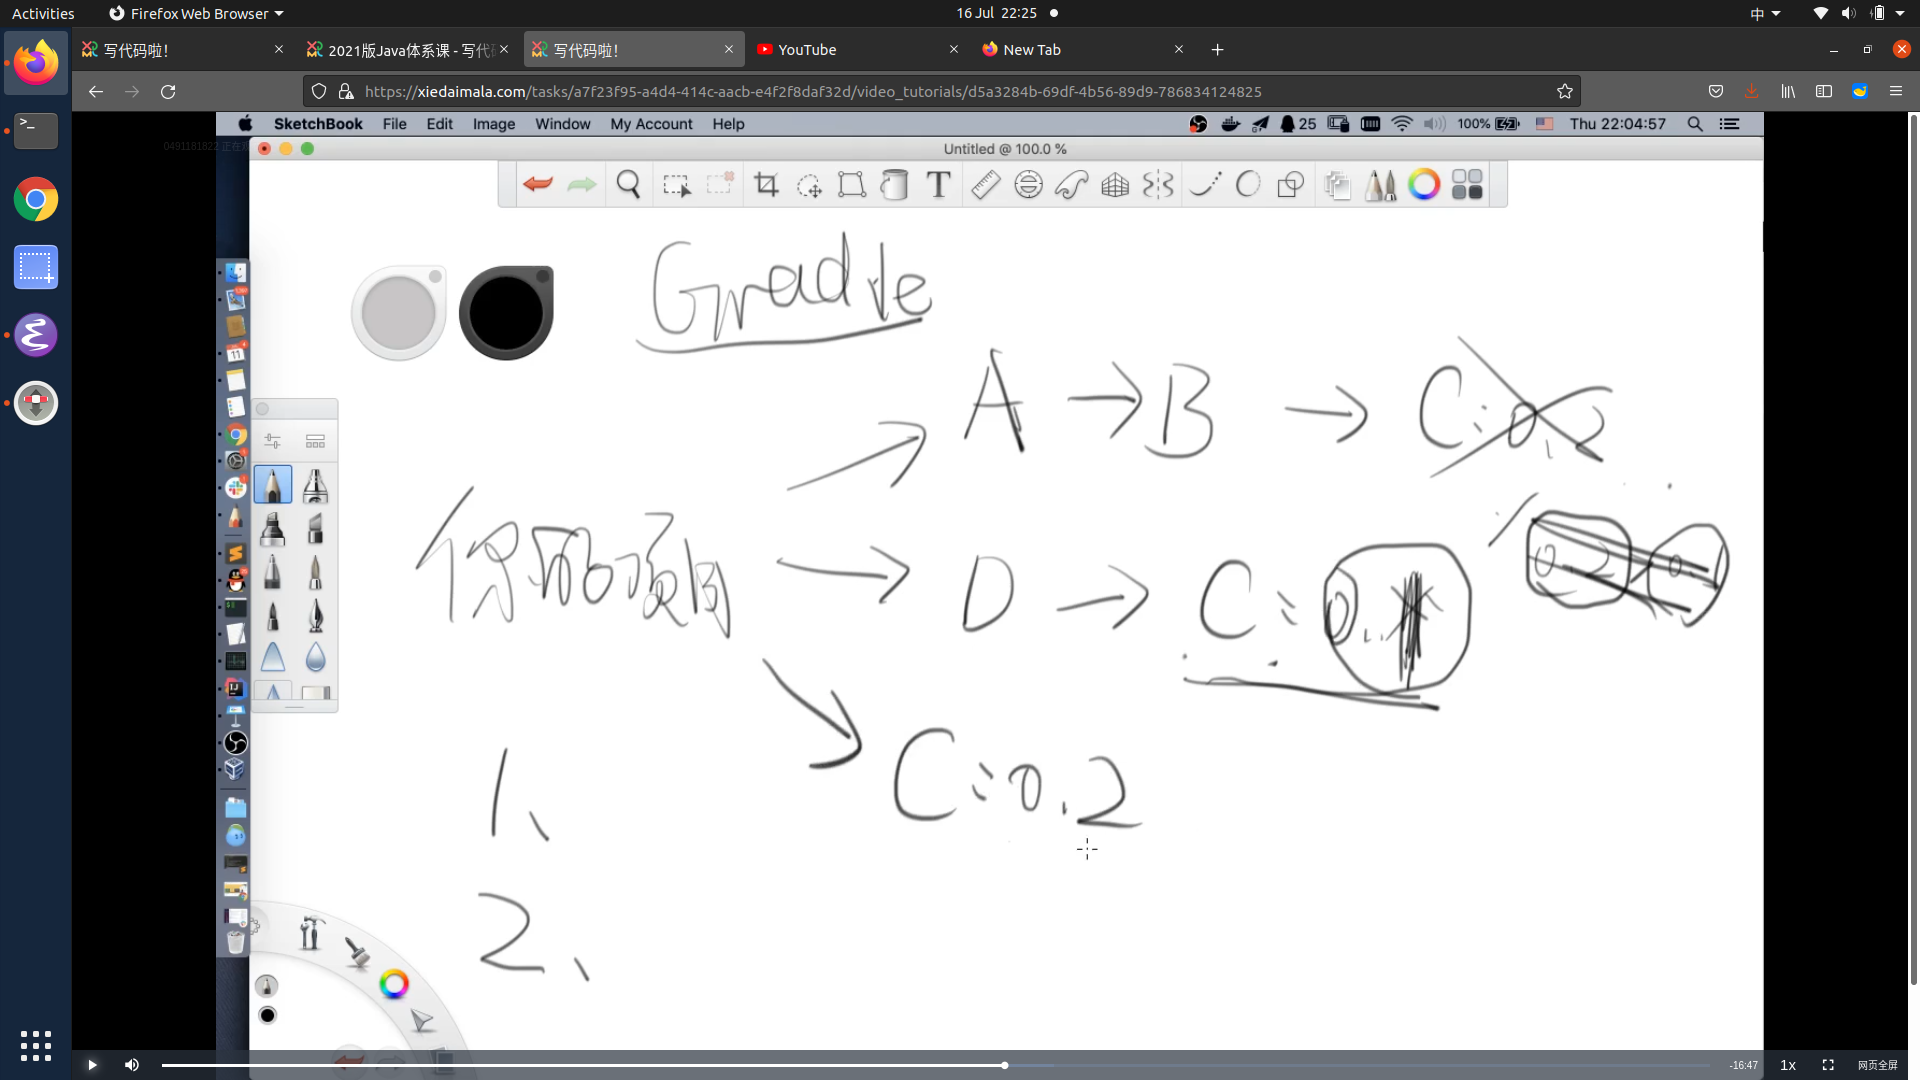 Activities
Firefox Web Browser
16 Jul 22:25
中
写代码啦!
2021版Java体系课 - 写代
写代码啦!
YouTube
New Tab
https://xiedaimala.com/tasks/a7f23f95-a4d4-414c-aacb-e4f2f8daf32d/video_tutorials/d5a3284b-69df-4b56-89d9-786834124825
SketchBook File Edit Image Window My Account Help
25
100%
Thu 22:04:57
0491181822 正在
Untitled @ 100.0 %
Gradle
A → B → C:0.2
0.2
你的项目
D → C:0.
C:0.2
1、
2、
-16:47
1x
网页全屏